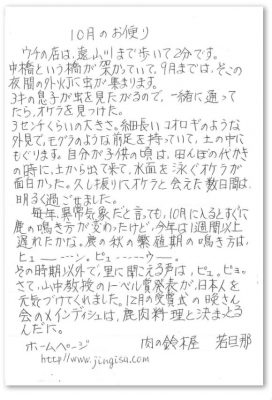 10月のお便り
ウチの店は、遠山川まで歩いて2分です。
中橋という橋が架かっていて、9月までは、そこの
夜間の外灯に虫が集まります。
3才の息子が虫を見たがるので、一緒に通って
たら、オケラを見つけた。
3センチくらいの大きさ。細長いコオロギのような
外見で、モグラのような前足を持っていて、土の中に
もぐります。自分が子供の頃は、田んぼの代かき
の時に、土から出て来て、水面を泳ぐオケラが
面白かった。久し振りにオケラと会えた数日間は、
明るく過ごせました。
毎年、異常気象だと言っても、10月に入るとすぐに
鹿の鳴き方が変わったけど、今年は1週間以上
遅れたかな。鹿の秋の繁殖期の鳴き方は、
ヒューーーン。ピューーーーウー。
その時期以外で、里に聞こえる声は、ピュ。ピョ。
さて、山中教授のノーベル賞発表が、日本人を
元気づけてくれました。12月の受賞式の晩さん
会のメインディシュは、鹿肉料理と決まとる
んだに。
ホームページ 肉の鈴木屋 若旦那
http://www.jingisu.com/